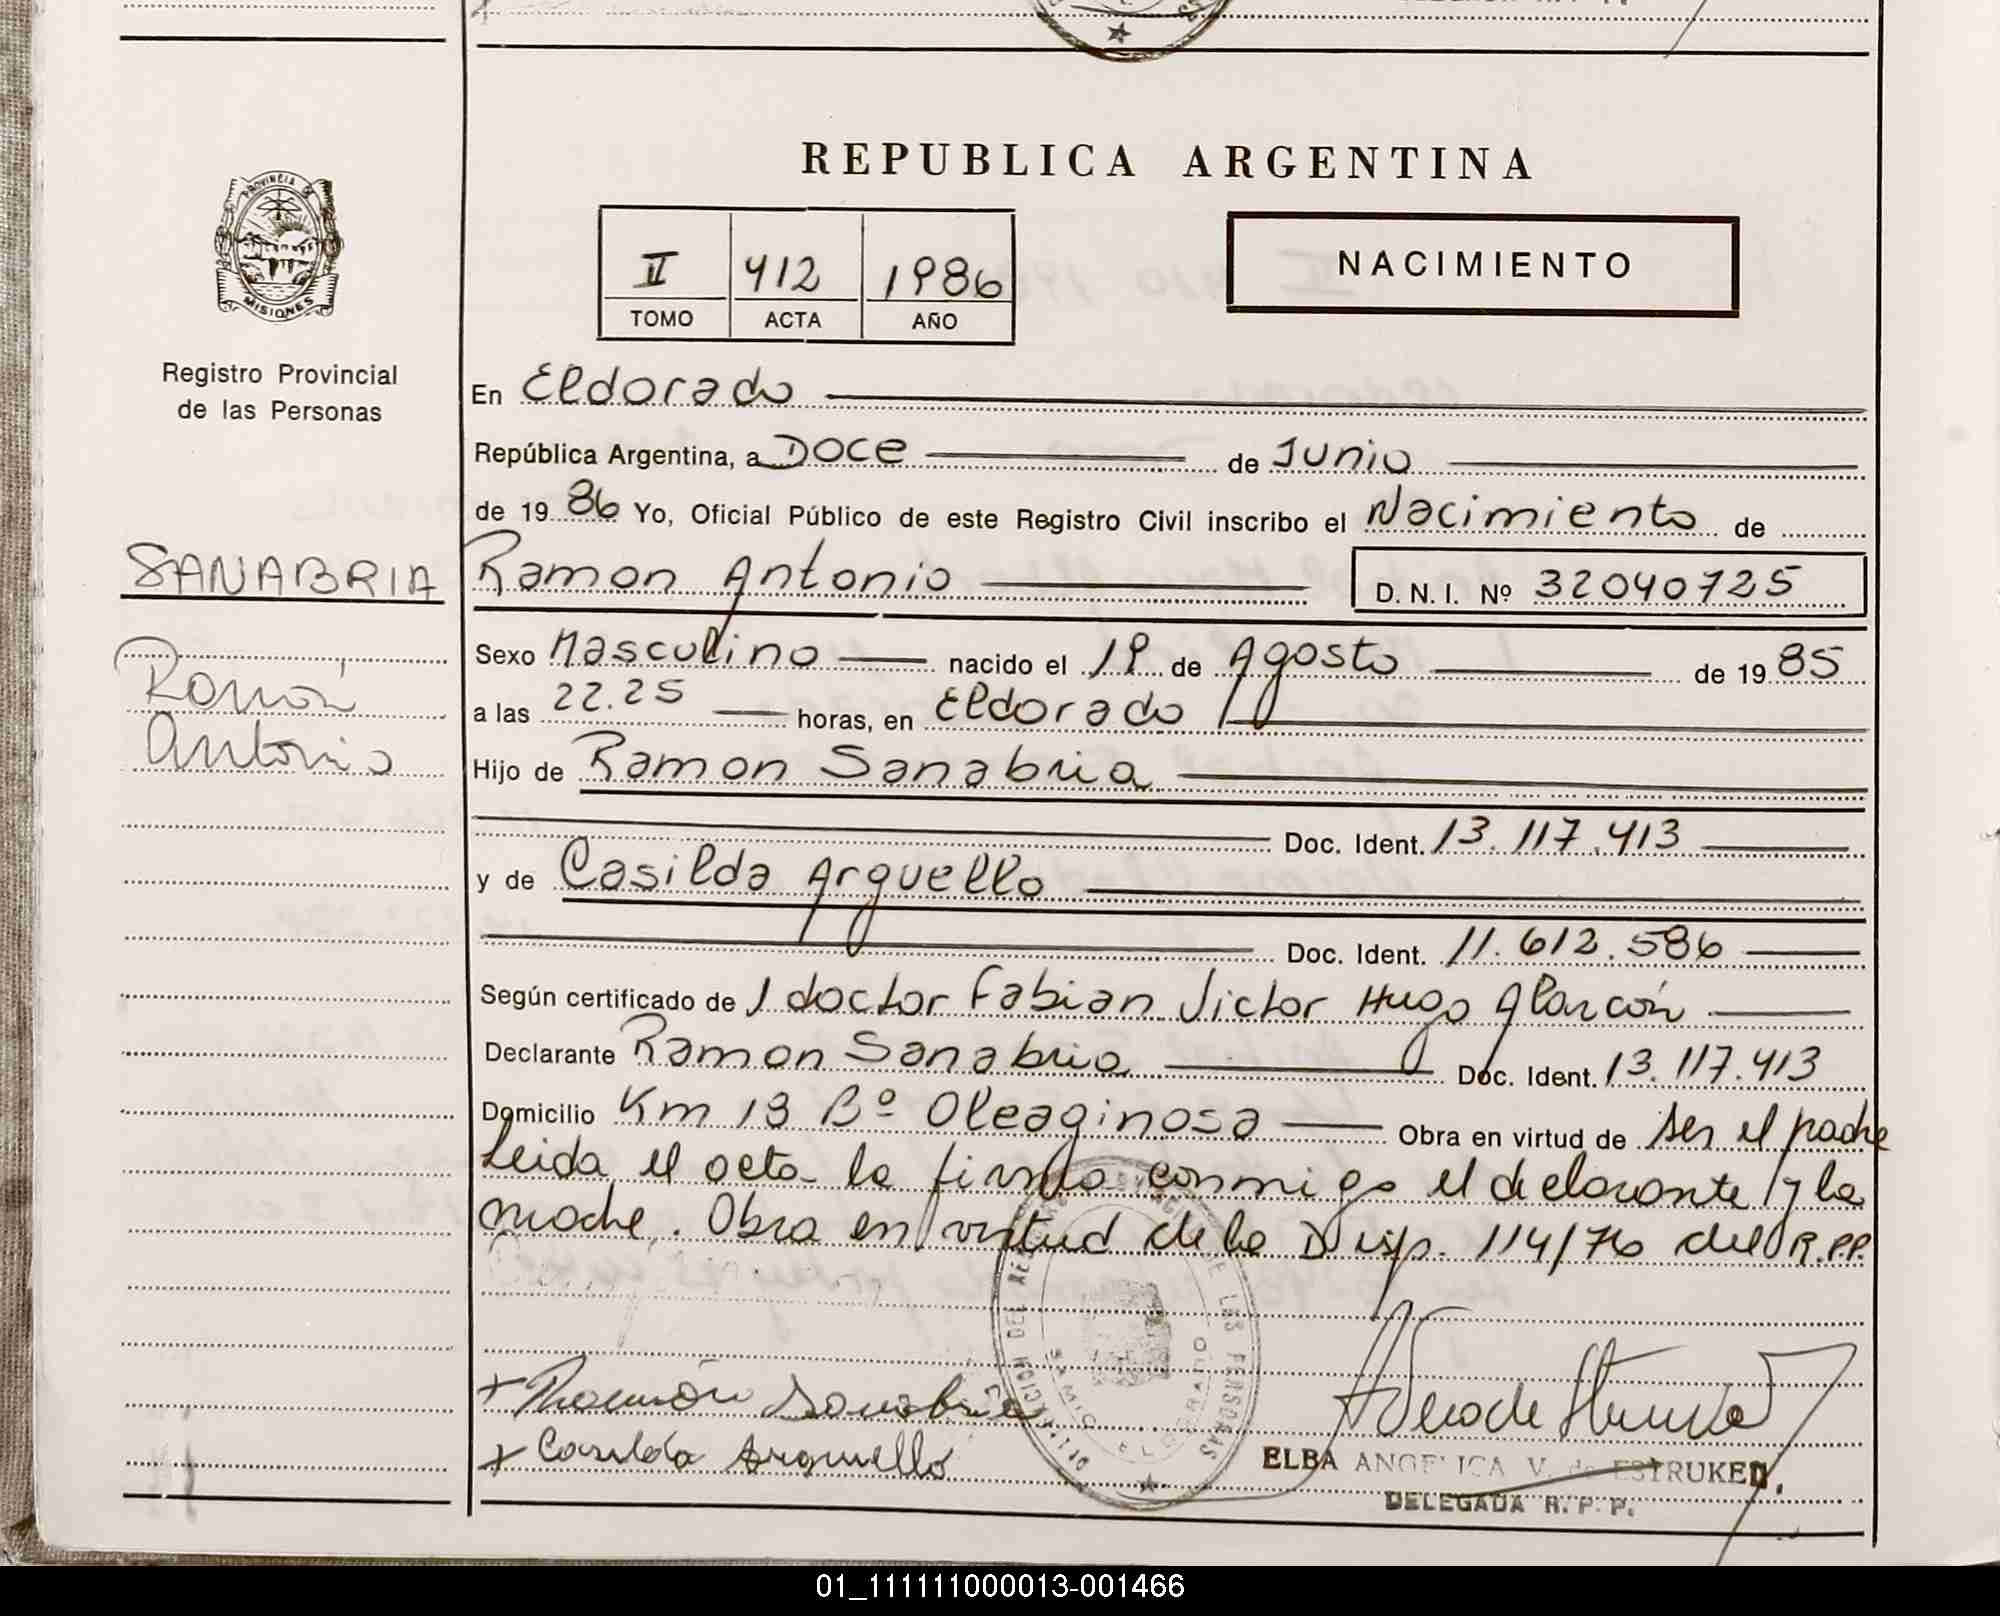 REPUBLICA ARGENTINA
PROVINCIA DE
MISIONES
Registro Provincial
de las Personas
II 412 1986
TOMO ACTA AÑO
NACIMIENTO
En Eldorado
República Argentina, a Doce de Junio
de 19 86 Yo, Oficial Público de este Registro Civil inscribo el Nacimiento de
SANABRIA
Ramon Antonio D.N.I. Nº 32040725
Ramón
Antonio
Sexo Masculino nacido el 19 de Agosto de 19 85
a las 22.25 horas, en Eldorado
Hijo de Ramon Sanabria
Doc. Ident. 13.117.413
y de Casilda Arguello
Doc. Ident. 11.612.586
Según certificado de l doctor Fabian Victor Hugo Alarcón
Declarante Ramon Sanabria Doc. Ident. 13.117.413
Domicilio Km 13 Bº Oleaginosa Obra en virtud de ser el padre
Leida el acta la firma conmigo el declarante y la
madre. Obra en virtud de la Disp. 114/76 del R.P.P.
DE LAS PERSONAS
ELDORADO
+ Ramón Sanabria
+ Casilda Arguello
ELBA ANGELICA V. de ESTRUKED.
DELEGADA R.P.P.
01_111111000013-001466